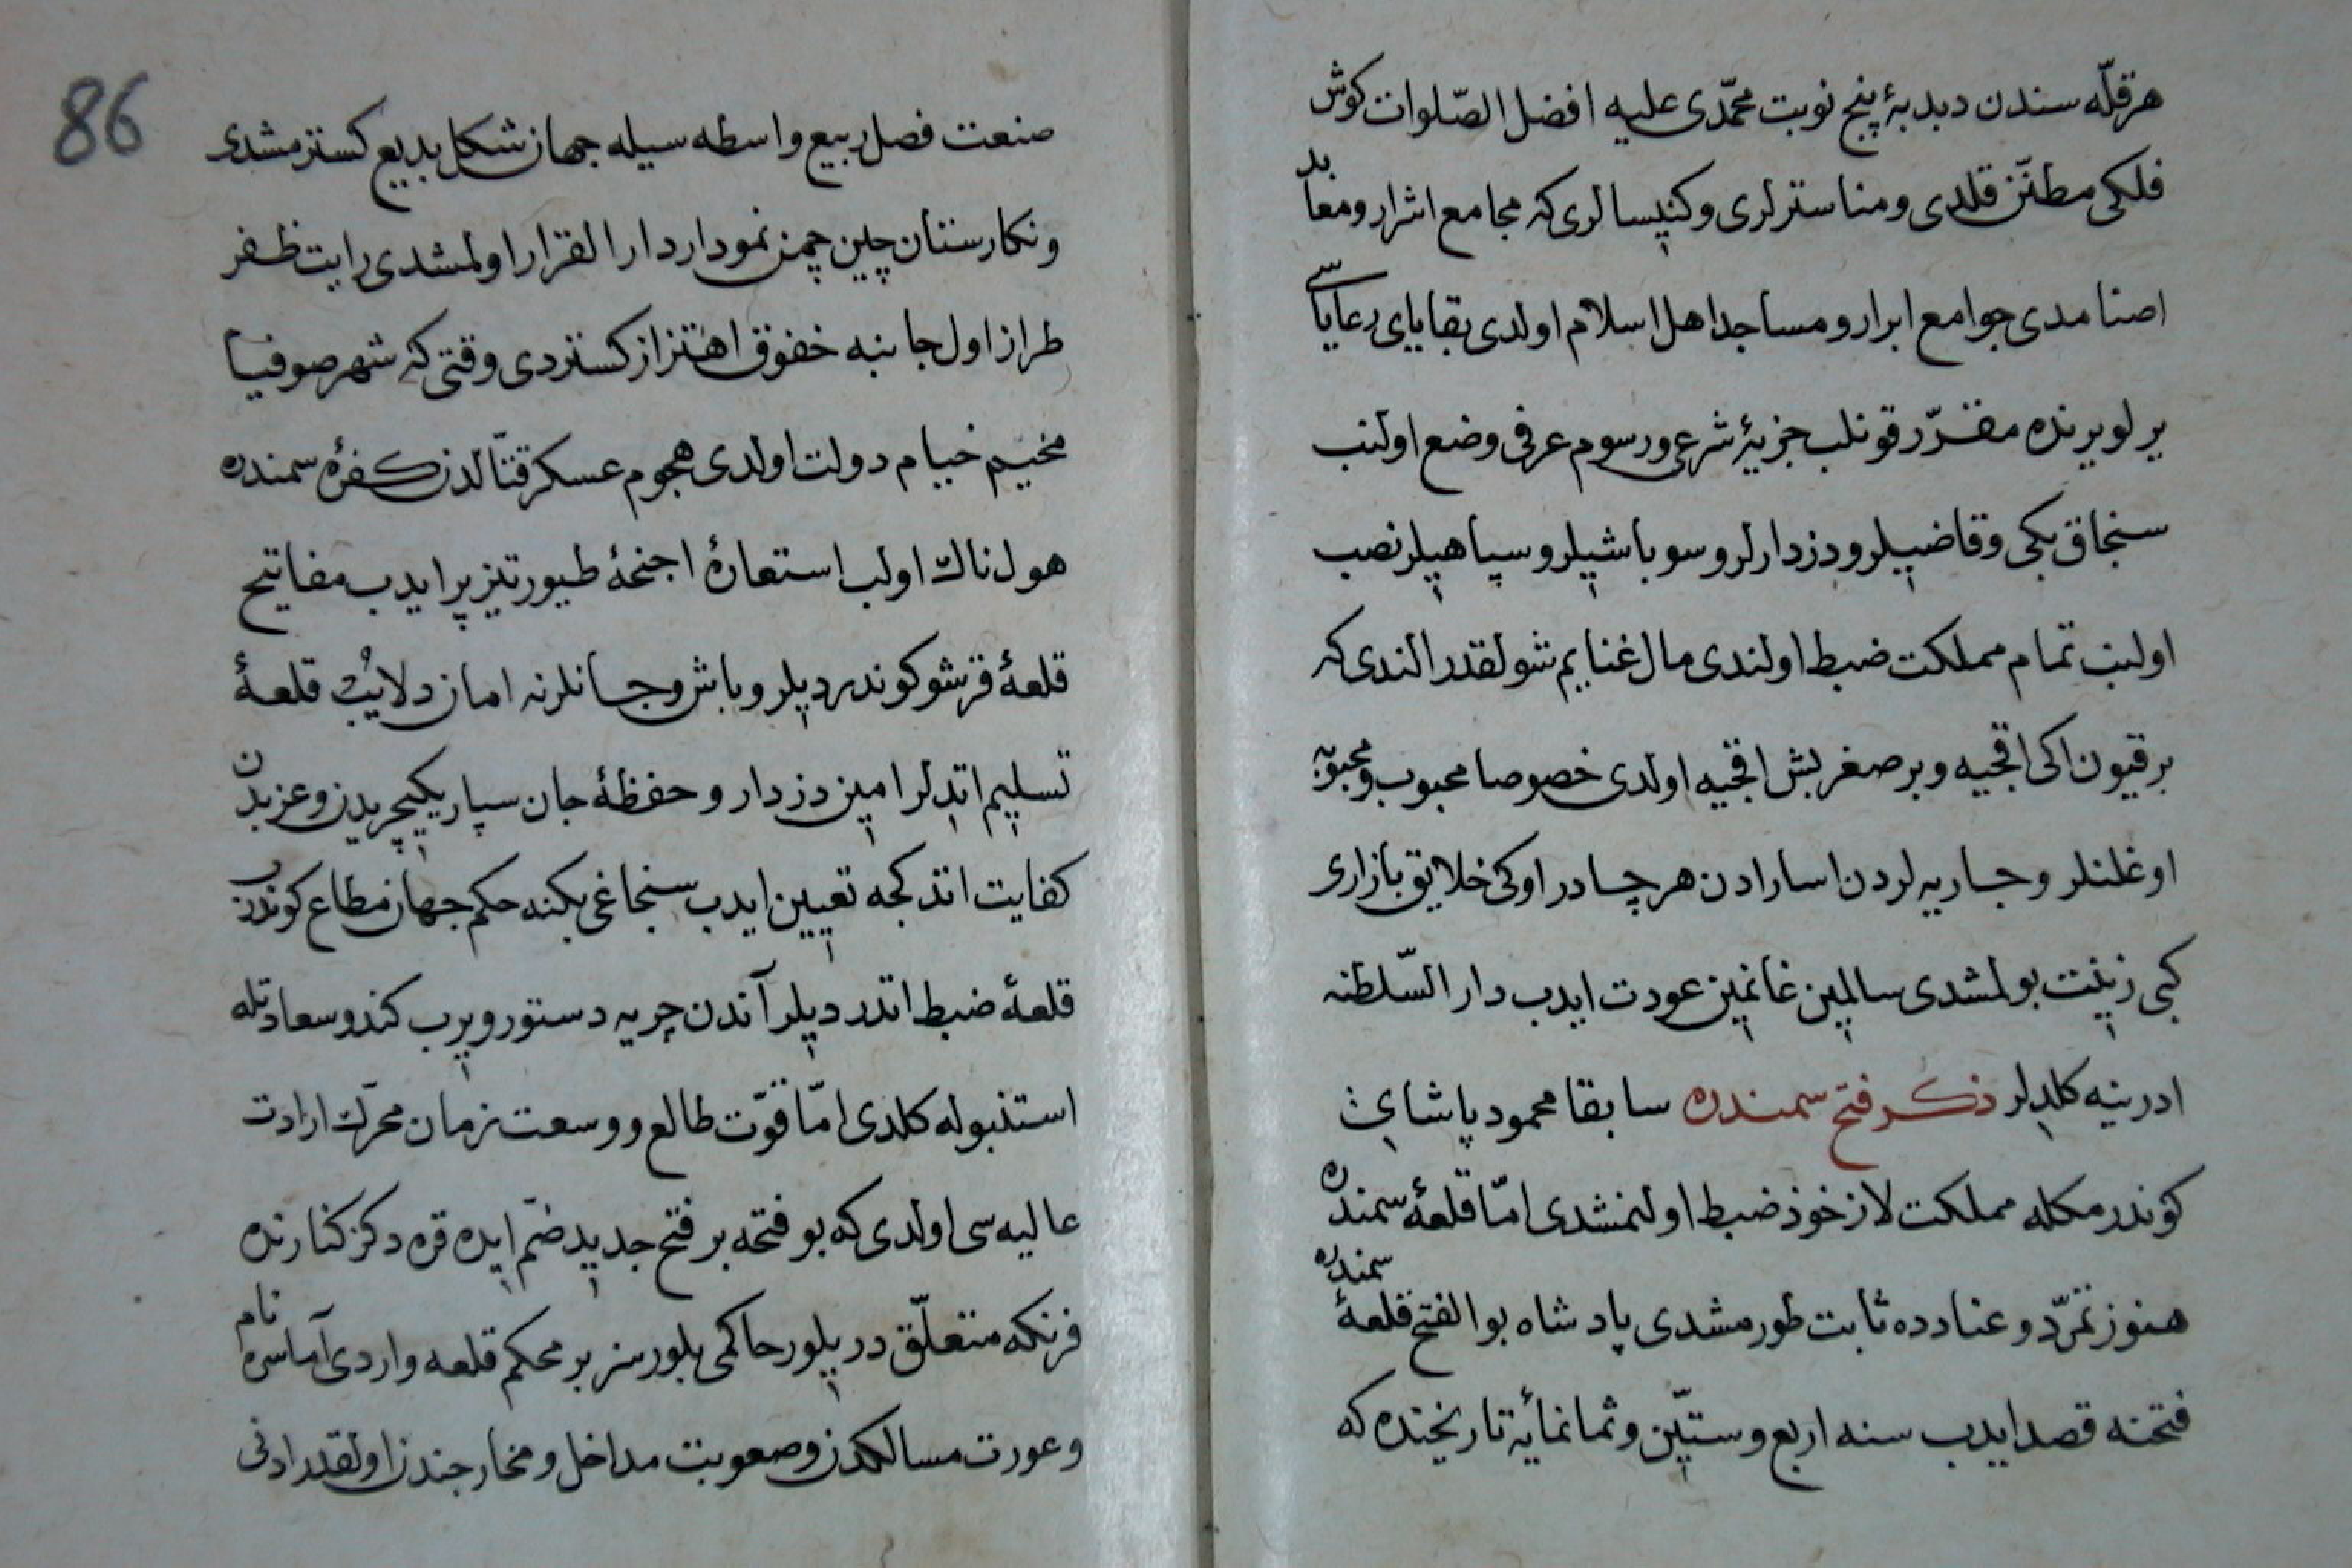 هر قلّه سندن دبدبۀ پنج نوبت محمّدی علیه افضل الصّلوات کوش
فلکی مطنّن قلدی و مناسترلری و کنیسالری که مجامع اشرار و معابد
اصنامدی جوامع ابرار و مساجد اهل اسلام اولدی بقایای رعایاسی
یرلو یرنده مقرّر قونلب جزیۀ شرعی و رسوم عرفی وضع اولنب
سنجاق بکی و قاضیلر و دزدارلر و سوباشیلر و سپاهیلر نصب
اولنب تمام مملکت ضبط اولندی مال غنایم شولقدر الندی که
بر قیون اکی اقجیه و بر صغر بش اقجیه اولدی خصوصا محبوب و محبوبه
اوغلنلر و جاریه لردن اسارادن هر چادر اوکی خلایق بازاری
کبی زینت بولمشدی سالمین غانمین عودت ایدب دار السّلطنه
ادرنیه کلدلر ذکر فتح سمندره سابقا محمود پاشای
کوندرمکله مملکت لاز خوذ ضبط اولنمشدی امّا قلعۀ سمندره
هنوز تمرّد و عنادده ثابت طورمشدی پادشاه بو الفتح قلعۀ سمندره
فتحنه قصد ایدب سنه اربع و ستّین و ثمانمائة تاریخنده که
86
صنعت فصل ربیع واسطه سیله جهان شکل بدیع کسترمشدی
و نکارستان چین چمن نمودار دار القرار اولمشدی رایت ظفر
طراز اول جانبه خفوق اهتزاز کستردی وقتی که شهر صوفیا
مخیّم خیام دولت اولدی هجوم عسکر قتّالدن کفرۀ سمندره
هولناك اولب استعارۀ اجنحۀ طیور تیز پر ایدب مفاتیح
قلعۀ قرشو کوندردیلر و باش و جانلرنه امان دلایب قلعۀ
تسلیم اتدلر امین دزدار و حفظۀ جان سپار یکیچریدن و عزبدن
کفایت اتدکجه تعیین ایدب سنجاغی بکنه حکم جهان مطاع کوندرب
قلعۀ ضبط اتدردیلر آندن چریه دستور ویرب کندو سعادتله
استنبوله کلدی امّا قوّت طالع و وسعت زمان محرّك ارادت
عالیه سی اولدی که بو فتحه بر فتح جدید ضمّ ایده قره دکز کنارنده
فرنکه متعلّق دریلور حاکمی بلورسز بر محکم قلعه واردی آماسره نام
و عورت مسالکدن و صعوبت مداخل و مخارجندن اولقدر ادنی